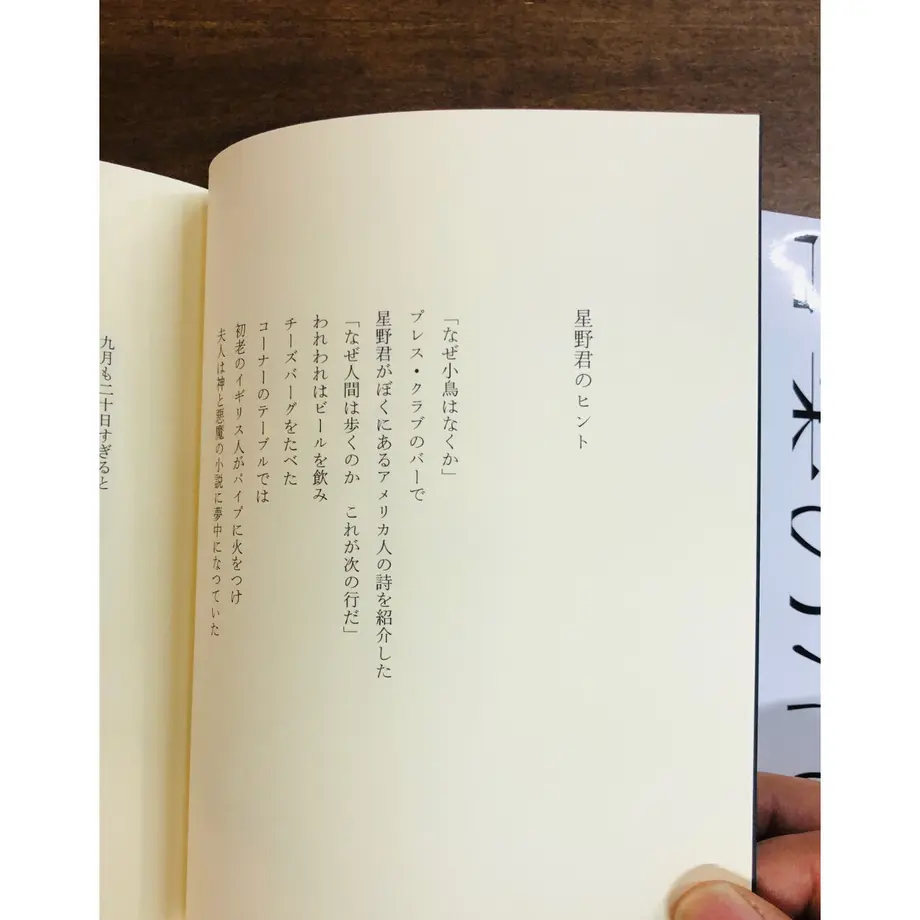 星野君のヒント
「なぜ小鳥はなくか」
プレス・クラブのバーで
星野君がぼくにあるアメリカ人の詩を紹介した
「なぜ人間は歩くのか　これが次の行だ」
われわれはビールを飲み
チーズバーグをたべた
コーナーのテーブルでは
初老のイギリス人がパイプに火をつけ
夫人は神と悪魔の小説に夢中になつていた
九月も二十日すぎると